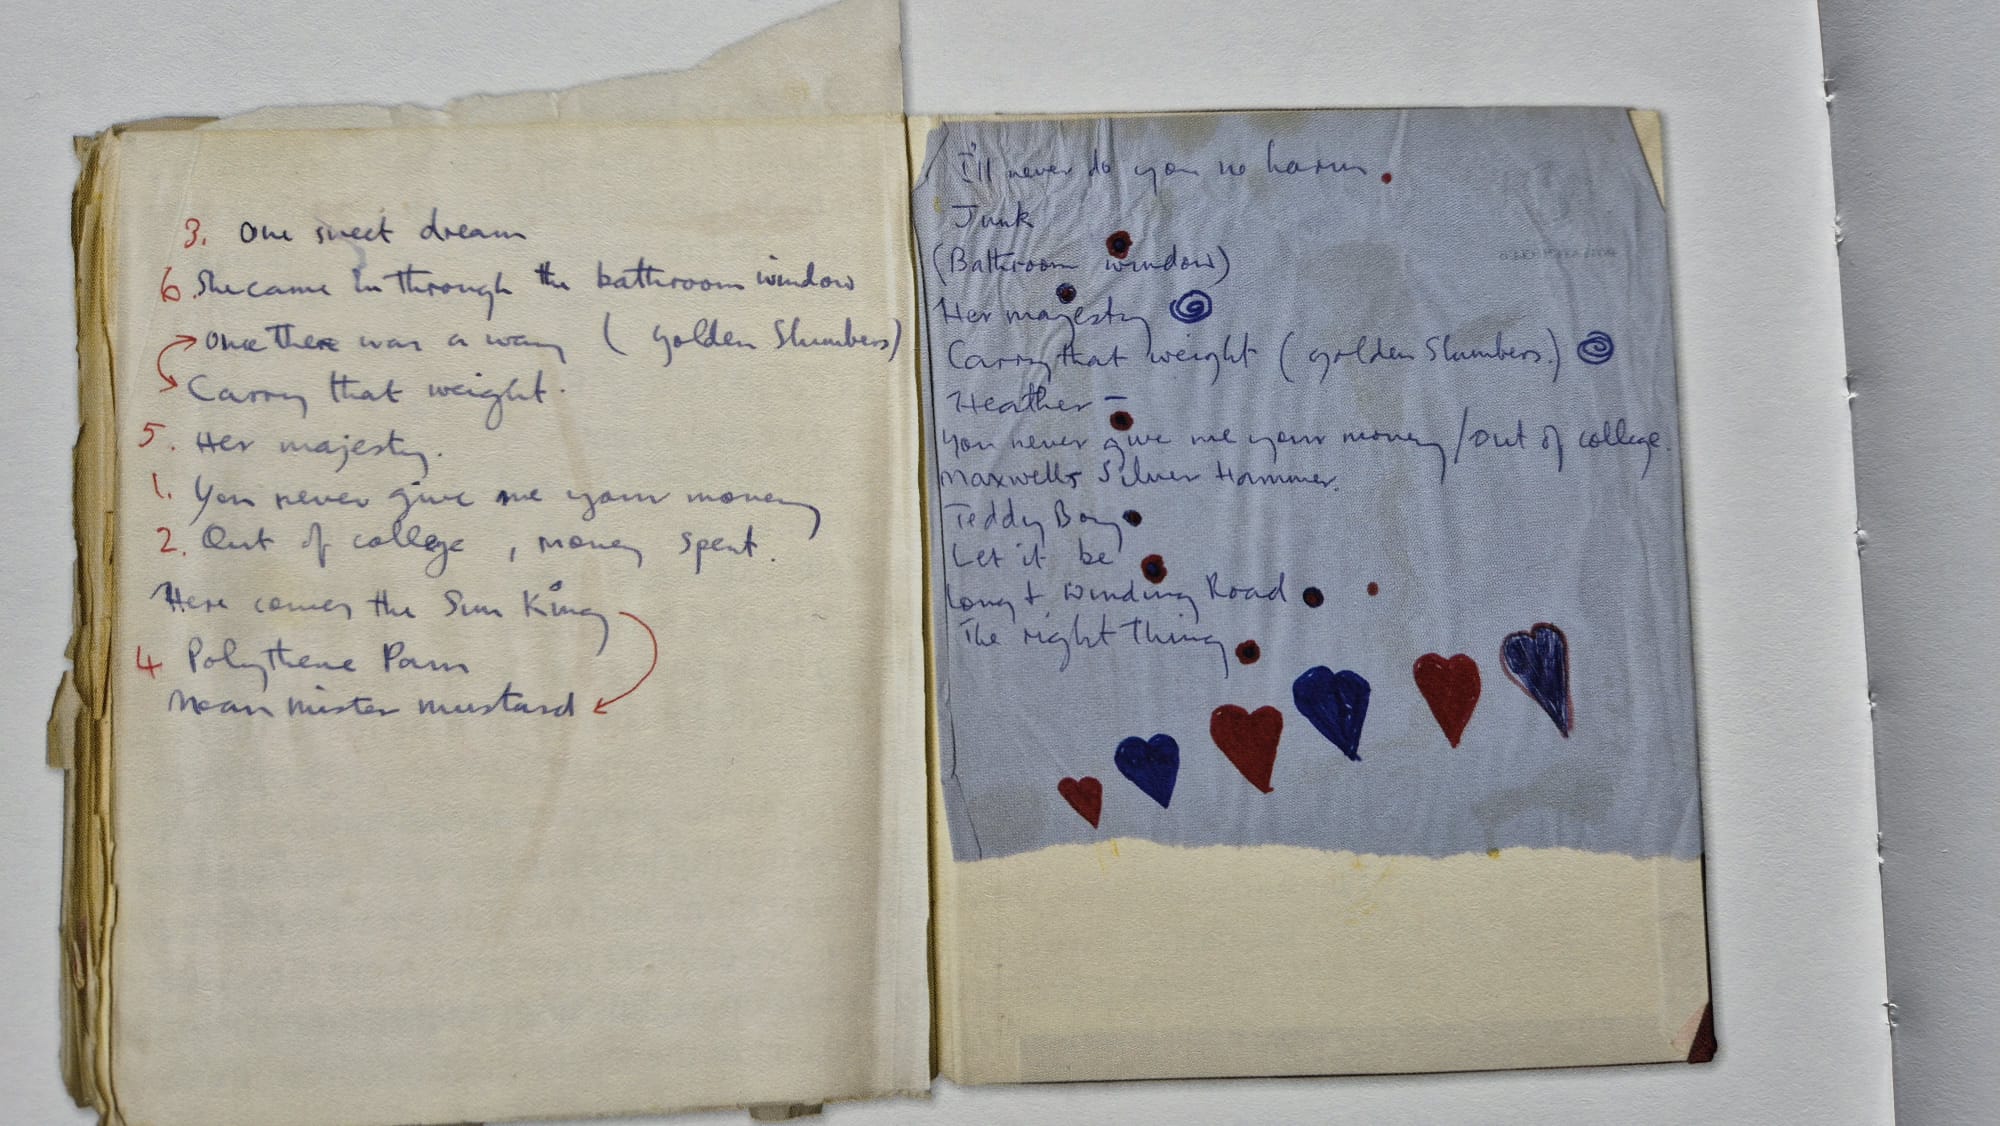 3. One sweet dream
6. She came in through the bathroom window
Once there was a way ( Golden Slumbers)
Carry that weight.
5. Her majesty.
1. You never give me your money
2. Out of college, money spent.
Here comes the Sun King
4 Polythene Pam
Mean mister mustard
I'll never do you no harm.
Junk
(Bathroom window)
Her majesty
Carry that weight (golden Slumbers.)
Heather –
You never give me your money / Out of college.
Maxwells Silver Hammer.
Teddy Boy
Let it be
Long & Winding Road
The right thing